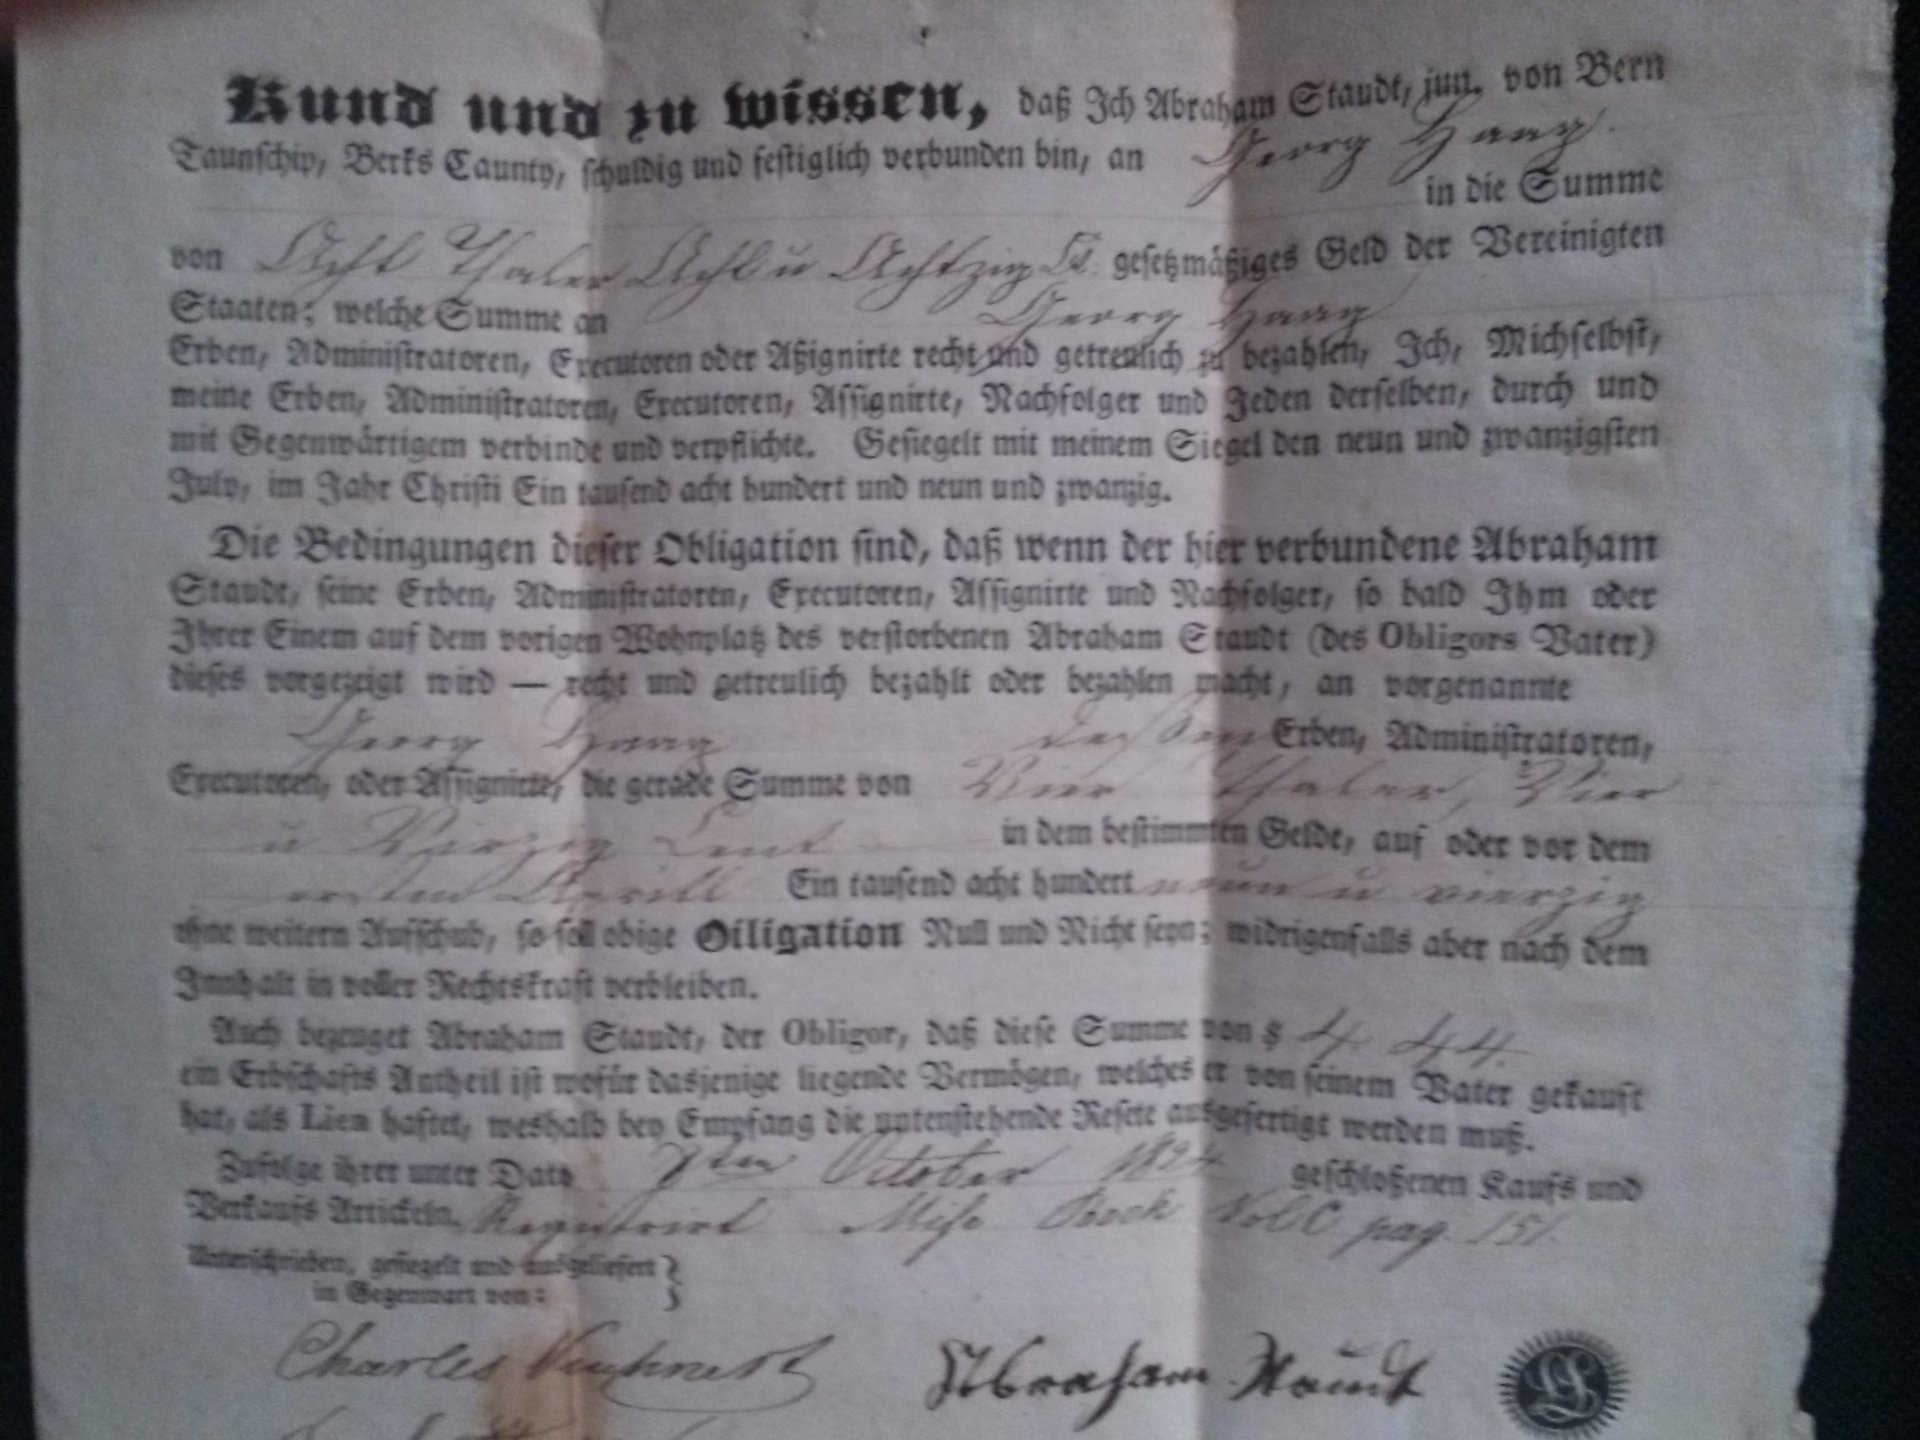 Kund und zu wissen, daß Ich Abraham Staudt, jun. von Bern
Taunschip, Berks Caunty, schuldig und festiglich verbunden bin, an Georg Haag
in die Summe
von Acht Thaler Acht u Achtzig Ct. gesetzmäßiges Geld der Vereinigten
Staaten; welche Summe an Georg Haag
Erben, Administratoren, Executoren oder Aßignirte recht und getreulich zu bezahlen, Ich, Michselbst,
meine Erben, Administratoren, Executoren, Assignirte, Nachfolger und Jeden derselben, durch und
mit Gegenwärtigem verbinde und verpflichte. Gesiegelt mit meinem Siegel den neun und zwanzigsten
July, im Jahr Christi Ein tausend acht hundert und neun und zwanzig.
Die Bedingungen dieser Obligation sind, daß wenn der hier verbundene Abraham
Staudt, seine Erben, Administratoren, Executoren, Assignirte und Nachfolger, so bald Ihm oder
Ihrer Einem auf dem vorigen Wohnplatz des verstorbenen Abraham Staudt (des Obligors Vater)
dieses vorgezeigt wird — recht und getreulich bezahlt oder bezahlen macht, an vorgenannte
Georg Haag deßen Erben, Administratoren,
Executoren, oder Assignirte, die gerade Summe von Vier Thaler, Vier
u Vierzig Cent in dem bestimmten Gelde, auf oder vor dem
ersten Aprill Ein tausend acht hundert neun u vierzig
ohne weitern Aufschub, so soll obige Oiligation Null und Nicht seyn; widrigenfalls aber nach dem
Innhalt in voller Rechtskraft verbleiben.
Auch bezeuget Abraham Staudt, der Obligor, daß diese Summe von $ 4. 44.
ein Erbschafts Antheil ist wofür dasjenige liegende Vermögen, welches er von seinem Vater gekauft
hat, als Lien haftet, weshalb bey Empfang die untenstehende Resete ausgefertigt werden muß.
Zufolge ihrer unter Dato 7ten October 1824 geschloßenen Kaufs und
Verkaufs Artickeln. Registrirt Misc Book Vol C pag 151.
Unterschrieben, gesiegelt und ausgeliefert
in Gegenwart von:
Charles
Abraham Staudt
LS